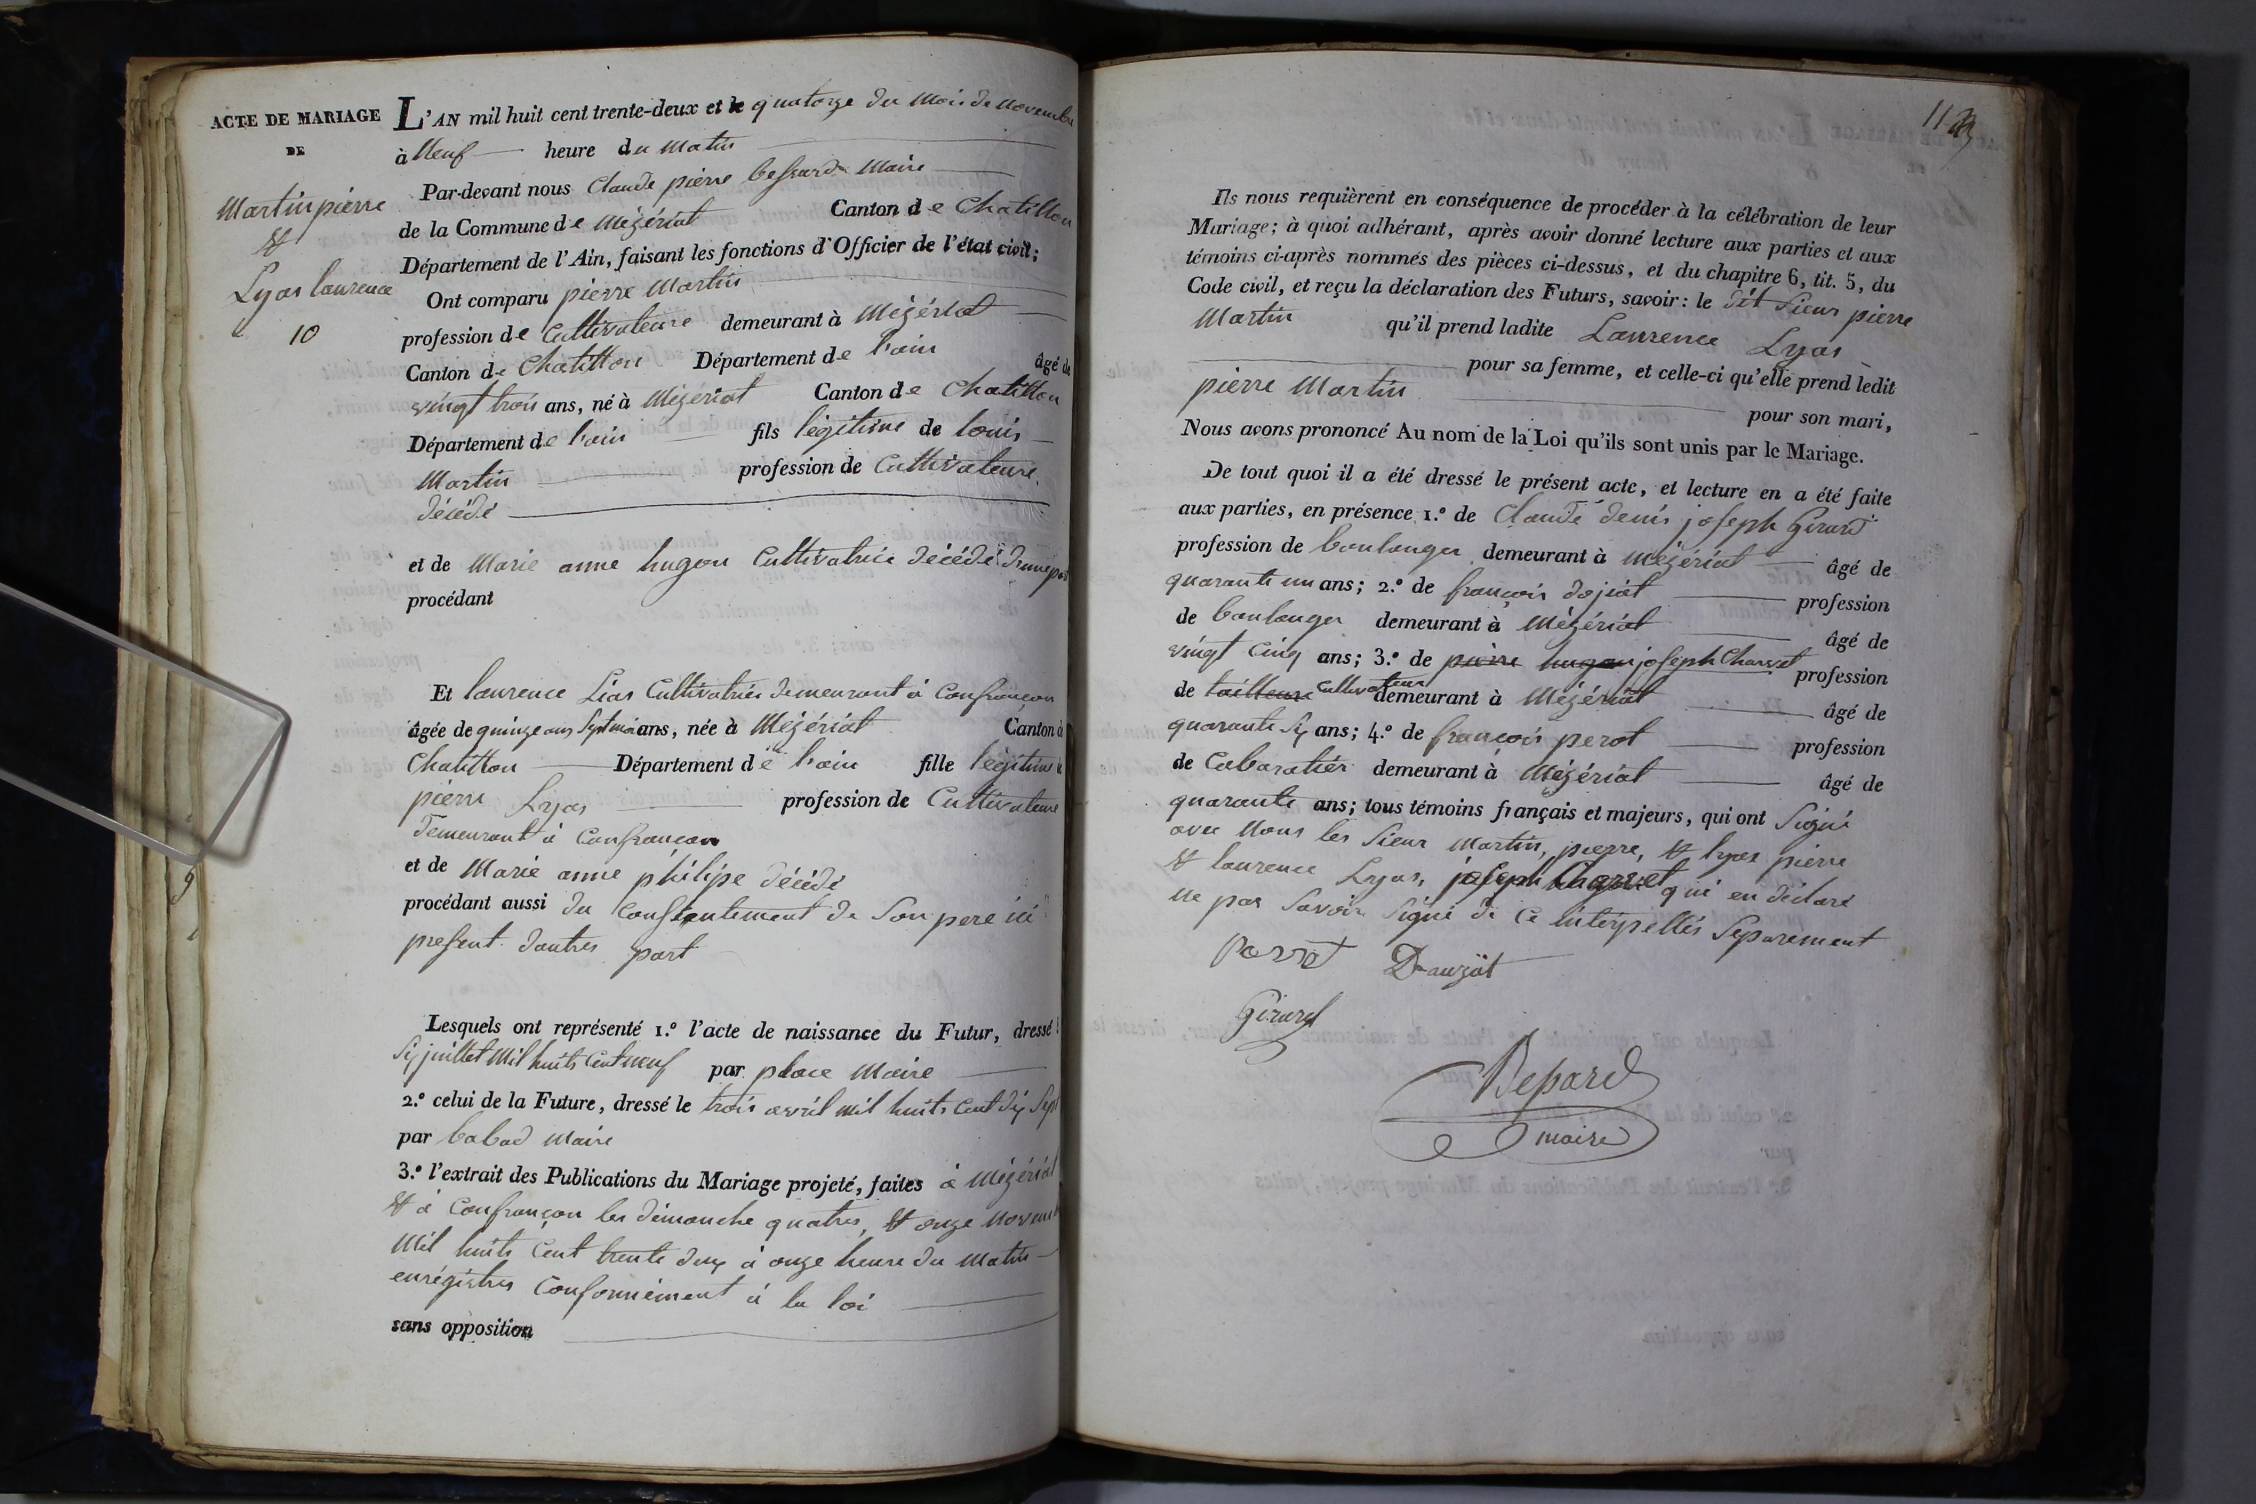 ACTE DE MARIAGE
DE
Martin pierre
&
Lyas laurence
10
L'AN mil huit cent trente-deux et le quatorze du mois de novembre
à Neuf heure du matin
Par-devant nous Claude pierre bessard Maire
de la Commune de Mézériat Canton de Chatillon
Département de l'Ain, faisant les fonctions d'Officier de l'état civil;
Ont comparu pierre Martin
profession de Cultivateure demeurant à Mézériat
Canton de Chatillon Département de l'ain âgé de
vingt trois ans, né à Mézériat Canton de Chatillon
Département de l'ain fils légitime de louis
Martin profession de Cultivateure
décédé
et de Marie anne hugon Cultivatrice décédé d'une part
procédant
Et laurence Lias Cultivatrice demeurant à Confrançon
âgée de quinze ans sept moi ans, née à Mézériat Canton de
Chatillon Département de l'ain fille légitime de
pierre Lyas profession de Cultivateure
demeurant à Confrançon
et de Marie anne philipe décédé
procédant aussi du consentement de Son pere ici
present d'autres part
Lesquels ont représenté 1.° l'acte de naissance du Futur, dressé
Six juillet Mil huits Cent neuf par place Maire
2.° celui de la Future, dressé le trois avril mil huits Cent dix Sept
par babad Maire
3.° l'extrait des Publications du Mariage projeté, faites à Mézériat
& à Confrançon les dimanche quatres, & onze Novembre
Mil huits Cent trente deux à onze heure du Matin
enrégistres Conformément à la loi
sans opposition
113
Ils nous requièrent en conséquence de procéder à la célébration de leur
Mariage; à quoi adhérant, après avoir donné lecture aux parties et aux
témoins ci-après nommés des pièces ci-dessus, et du chapitre 6, tit. 5, du
Code civil, et reçu la déclaration des Futurs, savoir: le dit Sieur pierre
Martin qu'il prend ladite Laurence Lyas
pour sa femme, et celle-ci qu'elle prend ledit
pierre Martin pour son mari,
Nous avons prononcé Au nom de la Loi qu'ils sont unis par le Mariage.
De tout quoi il a été dressé le présent acte, et lecture en a été faite
aux parties, en présence 1.° de Claude denis joseph Girard
profession de boulanger demeurant à Mézériat âgé de
quarante un ans; 2.° de françois dojiat profession
de boulanger demeurant à Mézériat âgé de
vingt Cinq ans; 3.° de pierre hugon joseph Charvet profession
de tailleure Cultivateur demeurant à Mézériat âgé de
quarante Six ans; 4.° de françois perot profession
de Cabaratier demeurant à Mézériat âgé de
quarante ans; tous témoins français et majeurs, qui ont Signé
avec Nous les Sieur Martin, pierre, & lyas pierre
& laurence Lyas, joseph Charvet qui en déclaré
ne pas Savoir Signé de Ce interpellés Séparement
Perrot Dauzat
Girard
Bessard
maire